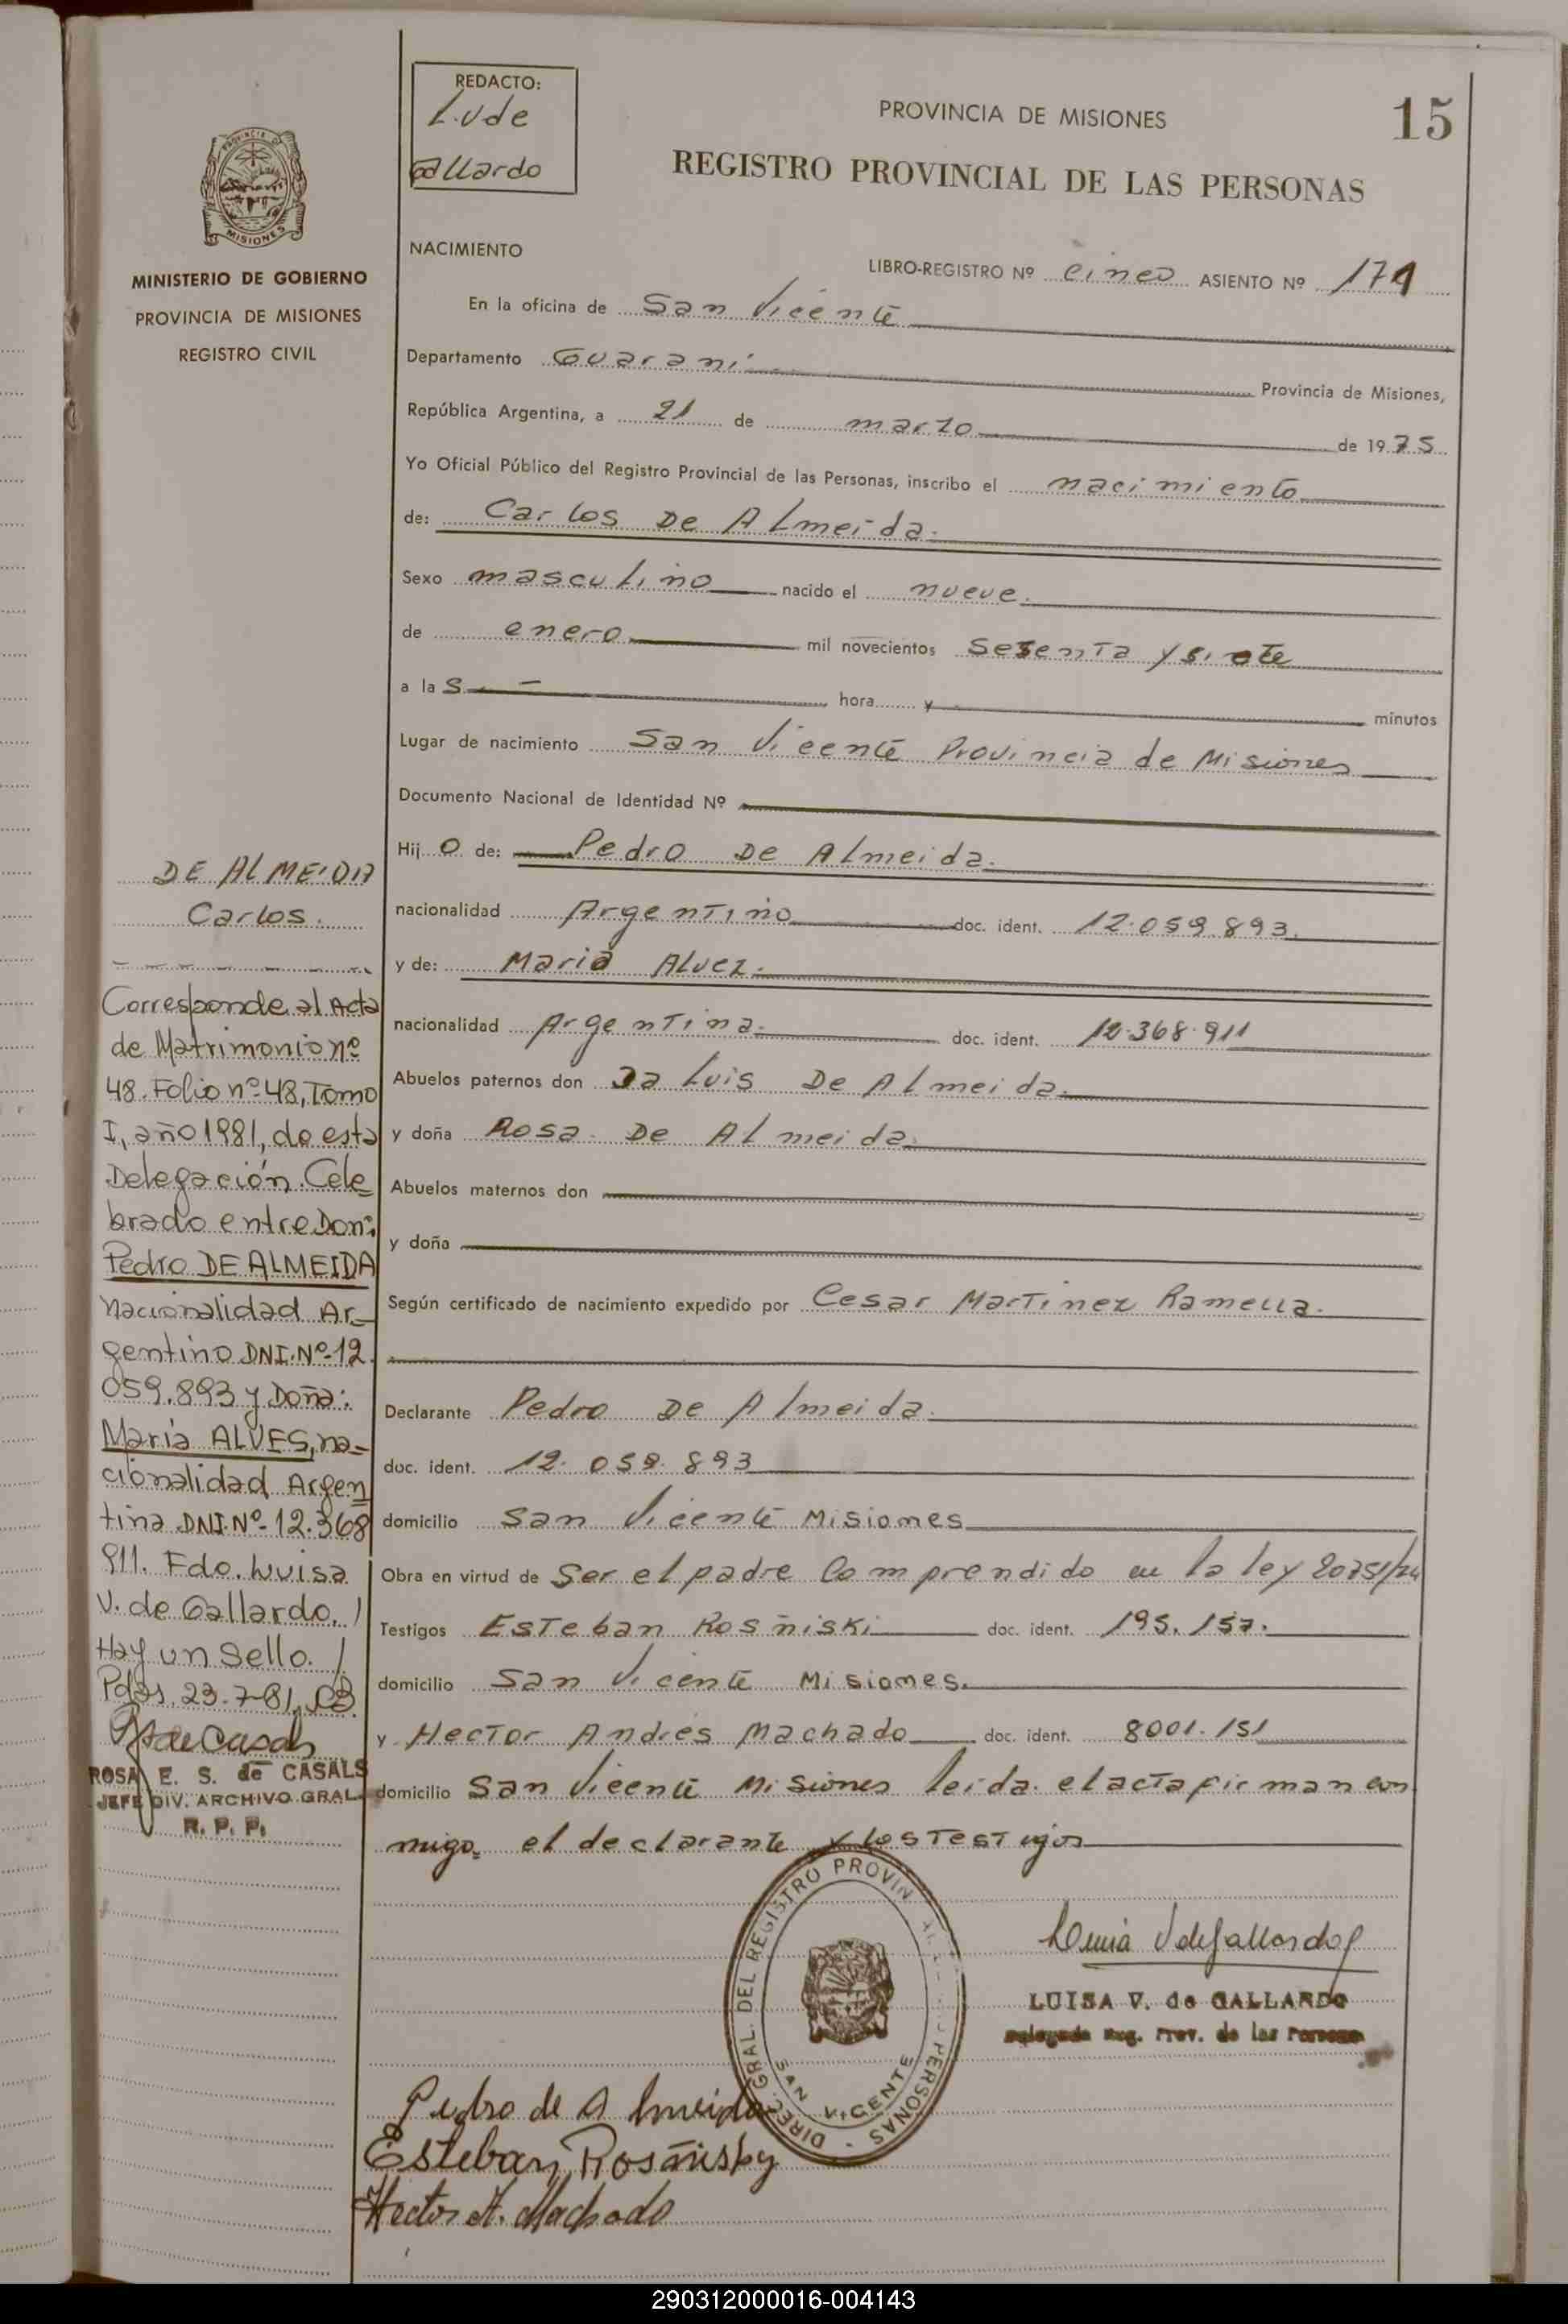 15
REDACTO:
L.V de
Gallardo
PROVINCIA DE MISIONES
REGISTRO PROVINCIAL DE LAS PERSONAS
PROVINCIA D
MISIONES
MINISTERIO DE GOBIERNO
PROVINCIA DE MISIONES
REGISTRO CIVIL
NACIMIENTO
LIBRO-REGISTRO Nº cinco ASIENTO Nº 171
En la oficina de San Vicente
Departamento Guaraní Provincia de Misiones,
República Argentina, a 21 de marzo de 1975
Yo Oficial Público del Registro Provincial de las Personas, inscribo el nacimiento
de: Carlos De Almeida.
Sexo masculino nacido el nueve.
de enero mil novecientos sesenta y siete
a las - hora y minutos
Lugar de nacimiento San Vicente Provincia de Misiones
Documento Nacional de Identidad Nº
Hijo de: Pedro De Almeida.
nacionalidad Argentino doc. ident. 12.059.893.
y de: Maria Alvez.
nacionalidad Argentina. doc. ident. 12.368.911
Abuelos paternos don Luis De Almeida.
y doña Rosa De Almeida.
Abuelos maternos don
y doña
Según certificado de nacimiento expedido por Cesar Martinez Ramella.
Declarante Pedro De Almeida.
doc. ident. 12.059.893
domicilio San Vicente Misiones
Obra en virtud de Ser el padre Comprendido en la ley 20751/74
Testigos Esteban Rosñiski doc. ident. 195.157.
domicilio San Vicente Misiones.
y Hector Andrés Machado doc. ident. 8001.151
domicilio San Vicente Misiones leida el acta firman con
migo el declarante y los Testigos
DE ALMEIDA
Carlos.
Corresponde al Acta
de Matrimonio nº
48. Folio nº-48, Tomo
I, año 1981, de esta
Delegación. Cele
brado entre Don:
Pedro DE ALMEIDA
nacionalidad Ar-
gentino DNI. Nº-12.
059.893 y Doña:
María ALVES, na-
cionalidad Argen
tina DNI. Nº-12.368
911. Fdo. Luisa
V. de Gallardo. /
Hay un Sello. /
Pdas 23-7-81.
ROSA E. S. de CASALS
JEFE DIV. ARCHIVO GRAL.
R. P. P.
DIREC. GRAL. DEL REGISTRO PROVIN PERSONAS
SAN VICENTE
Luisa V de Gallardo
LUISA V. de GALLARDO
Delegada Reg. Prov. de las Personas
Pedro de Almeida
Esteban Rosñisky
Hector A. Machado
290312000016-004143